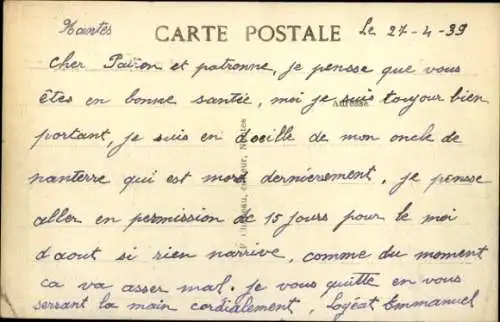 Nantes CARTE POSTALE Le 27-4-39
Cher Patron et patronne, je pensse que vous
êtes en bonne santée, moi je suis toujour bien
Adresse
portant, je suis en doeille de mon oncle de
nanterre qui est mort dernierement, je pensse
aller en permission de 15 jours pour le moi
daout si rien narrive, comme du moment
ca va asser mal. je vous quitte en vous
serrant la main cordialement, Logéat Emmanuel
Nantes